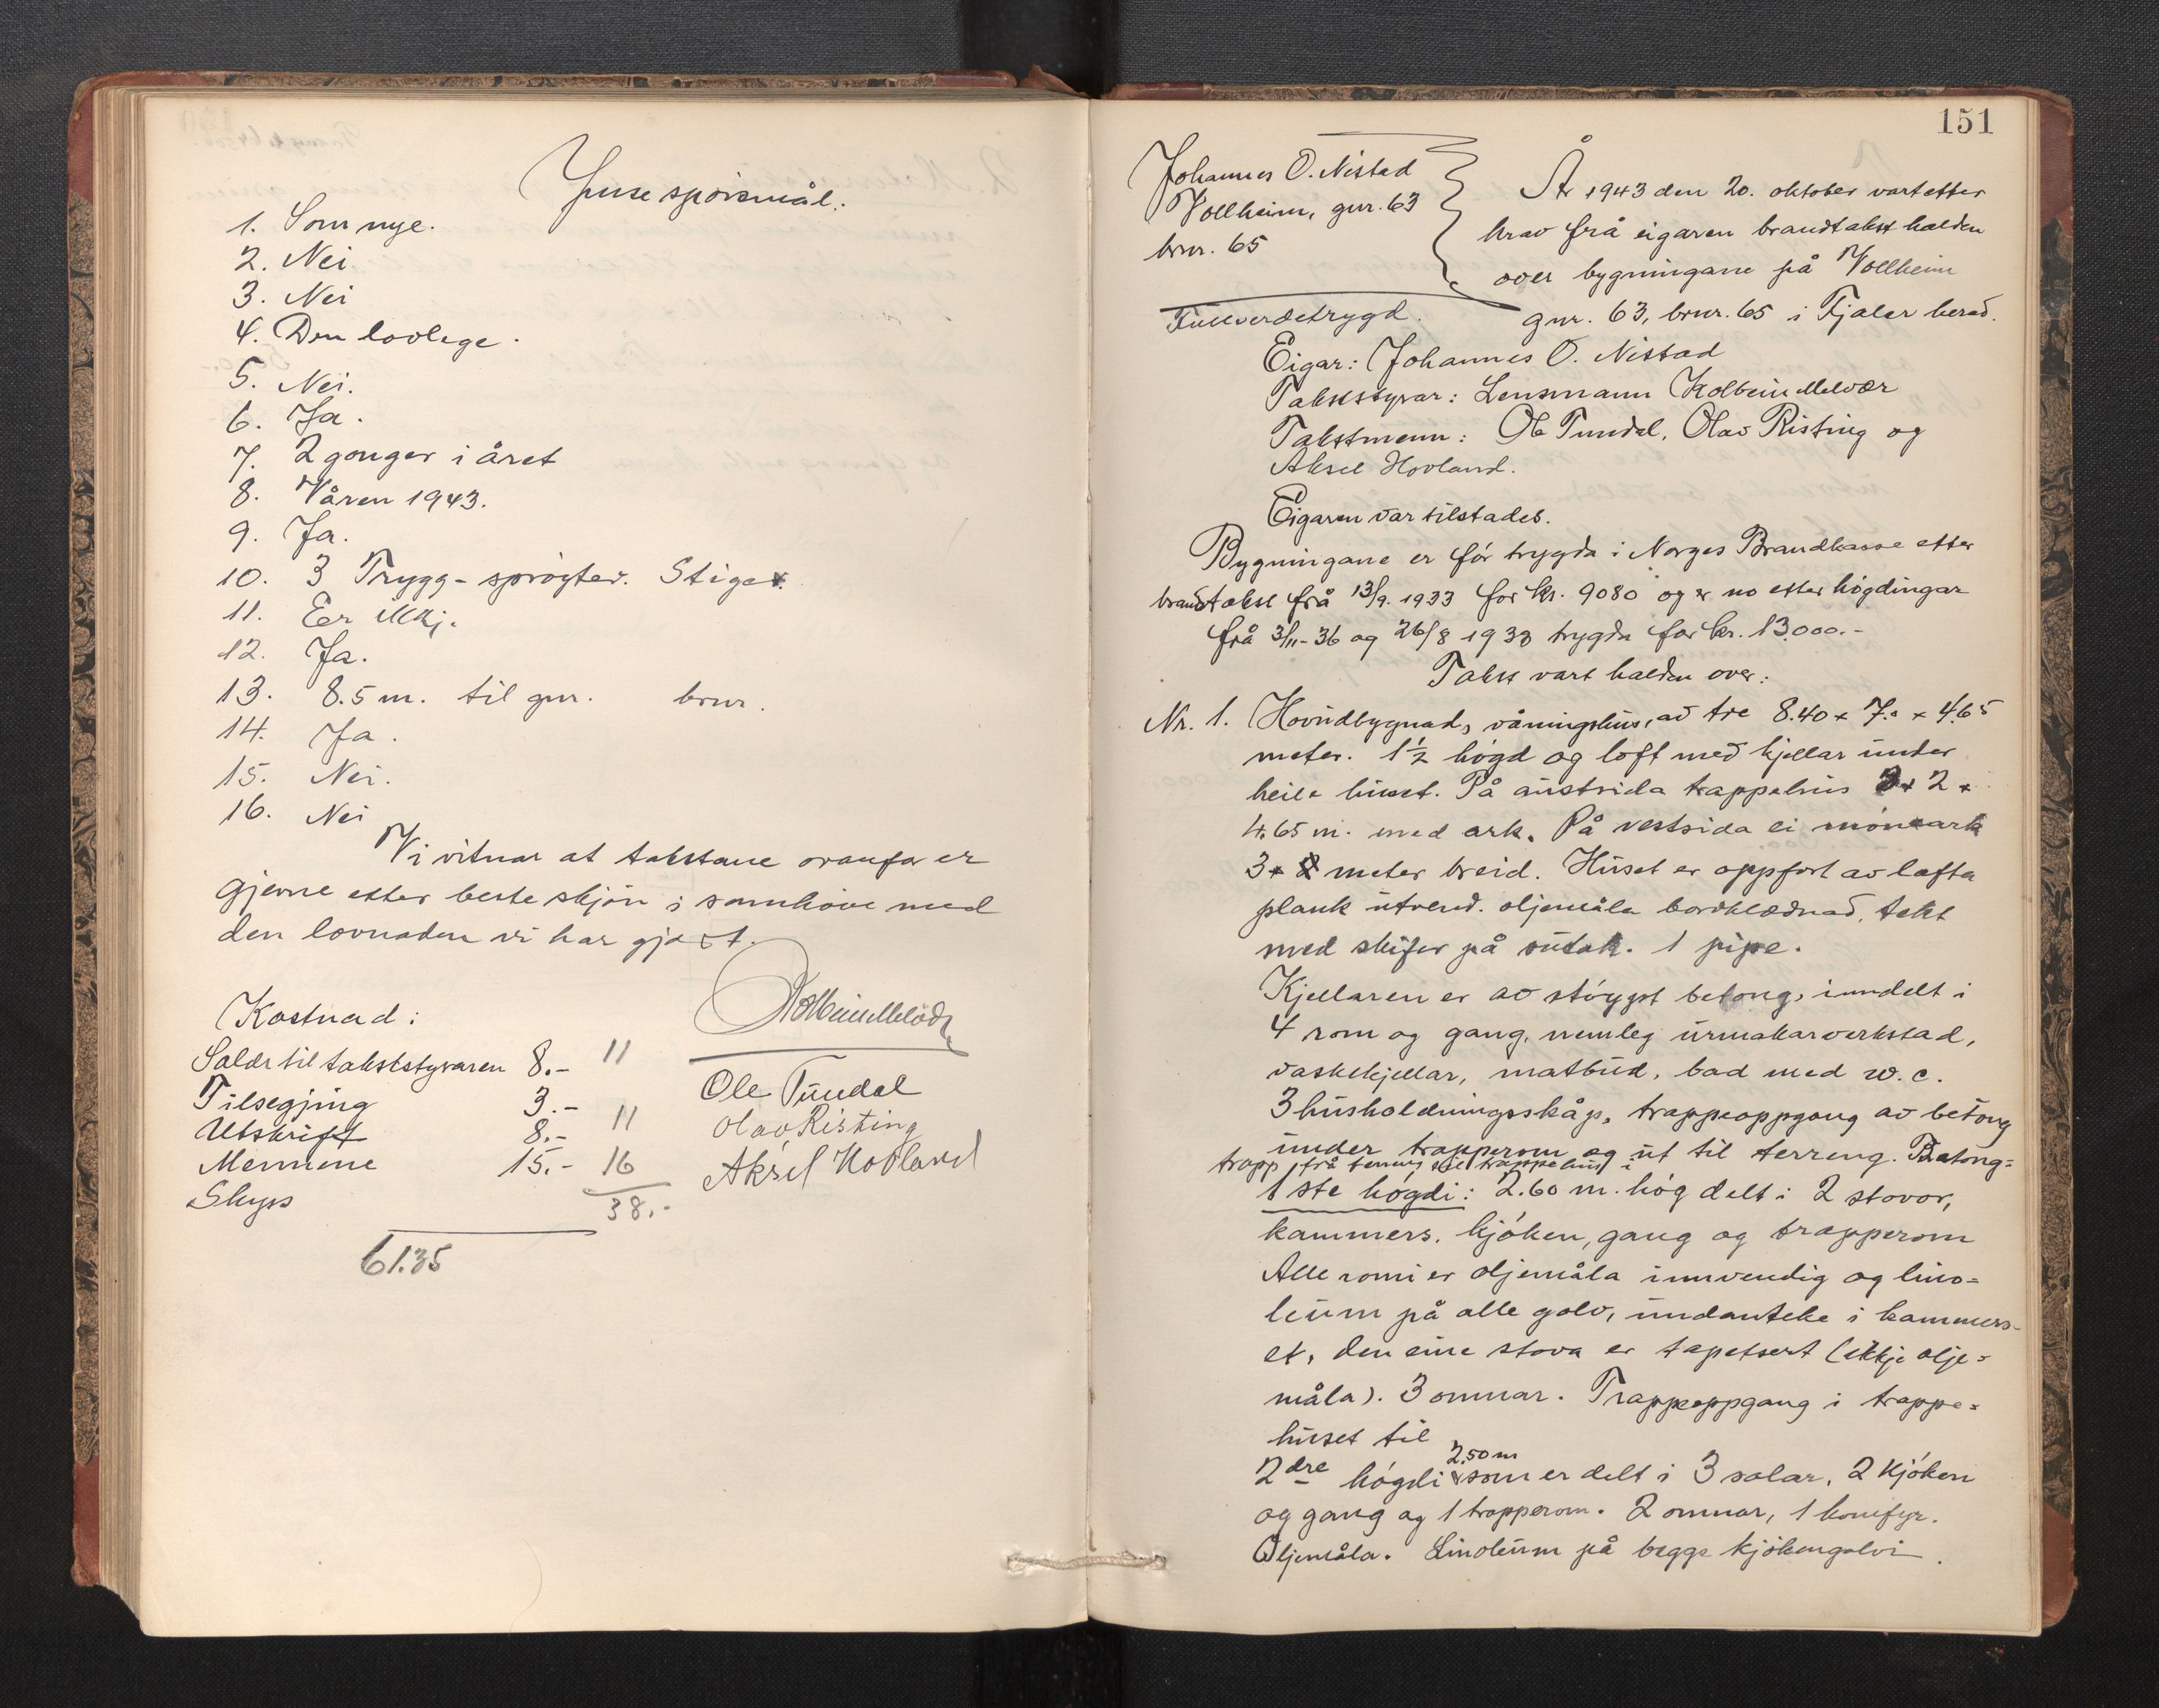 Ymse spörsmål.
1. Som nye.
2. Nei
3. Nei
4. Den lovlege.
5. Nei.
6. Ja.
7. 2 gonger i året
8. Våren 1943.
9. Ja.
10. 3 Trygg-sprögter. Stige
11. Er ikkj.
12. Ja.
13. 8.5 m. til gnr. brnr.
14. Ja.
15. Nei.
16. Nei
Vi vitnar at takstane ovanfor er
gjevne etter beste skjön i samhöve med
den lovnaden vi har gjort.
Kostnad:
Salær til takststyraren 8.- 11
Tilsegjing 3.-
Utskrift 8.- 11
Mennene 15.- 16
Skyss 38.-
61.35
Kolbein Melvær
Ole Tundal
Olav Risting
Aksel Hovland
151
Johannes O. Nistad
Vollheim, gnr. 63
brnr. 65
Fullverdetrygd.
År 1943 den 20. oktober vart etter
krav frå eigaren brandtakst halden
over bygningane på Vollheim
gnr. 63, brnr. 65 i Fjaler herad.
Eigar: Johannes O. Nistad
Takststyrar: Lensmann Kolbein Melvær
Takstmenn: Ole Tundal, Olav Risting og
Aksel Hovland.
Eigaren var tilstades.
Bygningane er för trygda i Norges Brandkasse etter
brandtakst frå 13/9. 1933 for kr. 9080 og er no etter högdingar
frå 3/11-36 og 26/8 1938 trygda for kr. 13.000.-
Takst vart halden over:
Nr. 1. Hovudbygnad, våningshus, av tre 8.40 x 7.- x 4.65
meter. 1½ högd og loft med kjellar under
heile huset. På austsida trappehus 3 x 2 x
4.65 m. med ark. På vestsida ei möneark
3 x meter breid. Huset er oppfört av lafta
plank utvend. oljemåla bordklædnad, tekt
med skifer på sutak. 1 pipe.
Kjellaren er av stöypt betong, inndelt i
4 rom og gang, nemleg urmakarverkstad,
vaskekjellar, matbud, bad med w.c.
3 husholdningsskåp, trappeoppgang av betong
under trapperom og ut til terreng. Betong=
trapp frå terreng til trappehus i
1ste högdi: 2.60 m. hög delt i 2 stovor,
kammers, kjöken, gang og trapperom
Alle romi er oljemåla innvendig og lino=
leum på alle golv, undanteke i kammers-
et, den eine stova er tapetsert (ikkje olje=
måla). 3 omnar. Trappeoppgang i trappe=
huset til
2dre högdi 2.50 m som er delt i 3 salar, 2 kjöken
og gang og 1 trapperom. 2 omnar, 1 komfyr.
Oljemåla. Linoleum på begge kjökengolvi.